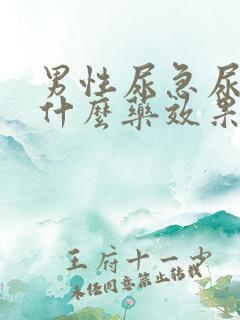 男性尿急尿
什麼藥效果
王府十一少
未经同意禁止转载